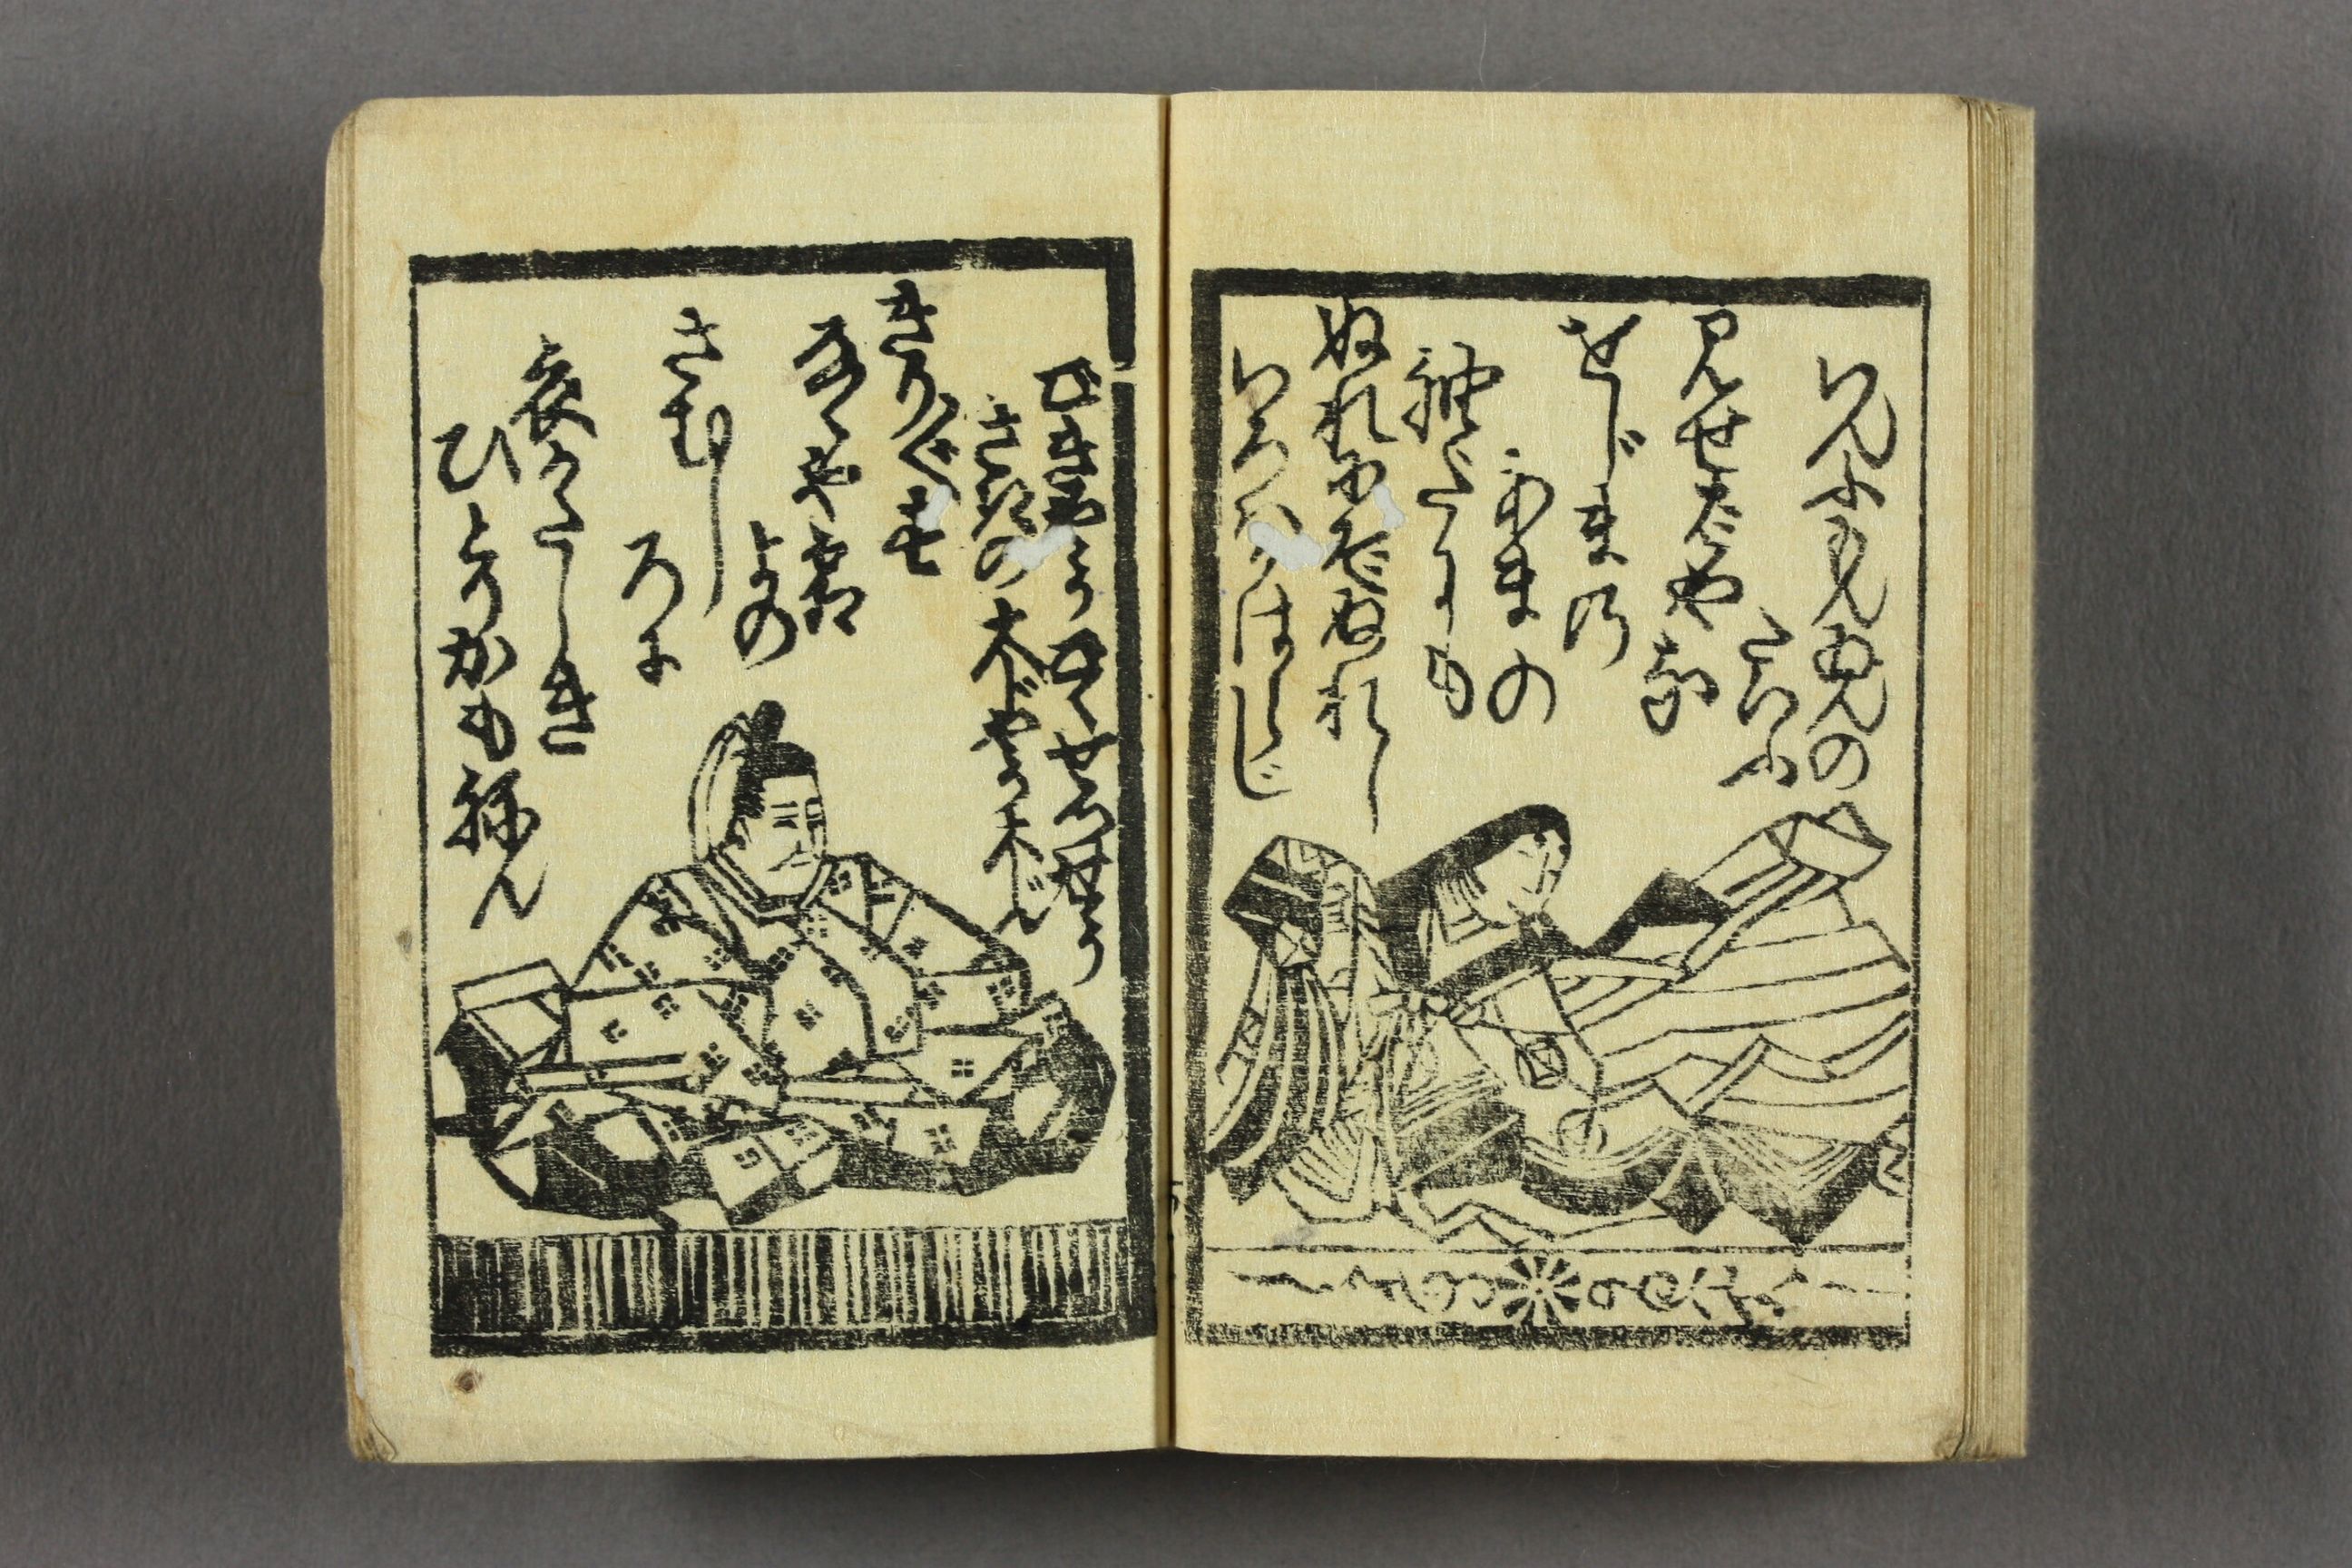 いんふもん院の
たいふ
見せばやな
をじまの
あまの
袖だにも
ぬれにぞぬれし
いろはかはらじ
ごきやうごくせつしやう
さきの太じやう大じん
きり〴〵す
なくや霜
よの
さむし
ろに
衣かたしき
ひとりかもねん